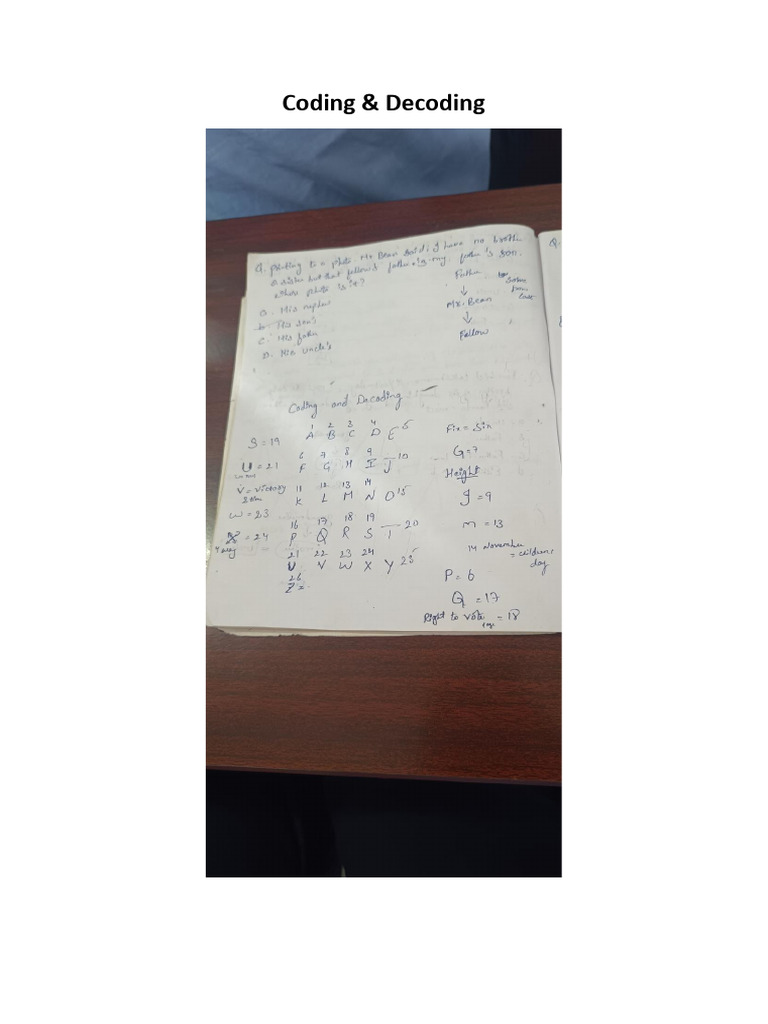 Coding & Decoding
Q. pointing to a photo Mr. Bean said, I have no broth
or sister but that fellow's father is my father's son.
whose photo is it?
a. His nephew
b. His son's
c. His father
D. His uncle's
Father
↓
Mr. Bean
↓
Fellow
Solve
from
last
Q.
Coding and Decoding
1 2 3 4
A B C D E 5
6 7 8 9
F G H I J 10
11 12 13 14
K L M N O 15
16 17 18 19
P Q R S T 20
21 22 23 24
U V W X Y 25
26
Z =
S = 19
U = 21
V = Victory
W = 23
X = 24
Fix = Six
G = 7
Height
I = 9
M = 13
14 November
= children's
day
P = 6
Q = 17
Right to vote = 18
age